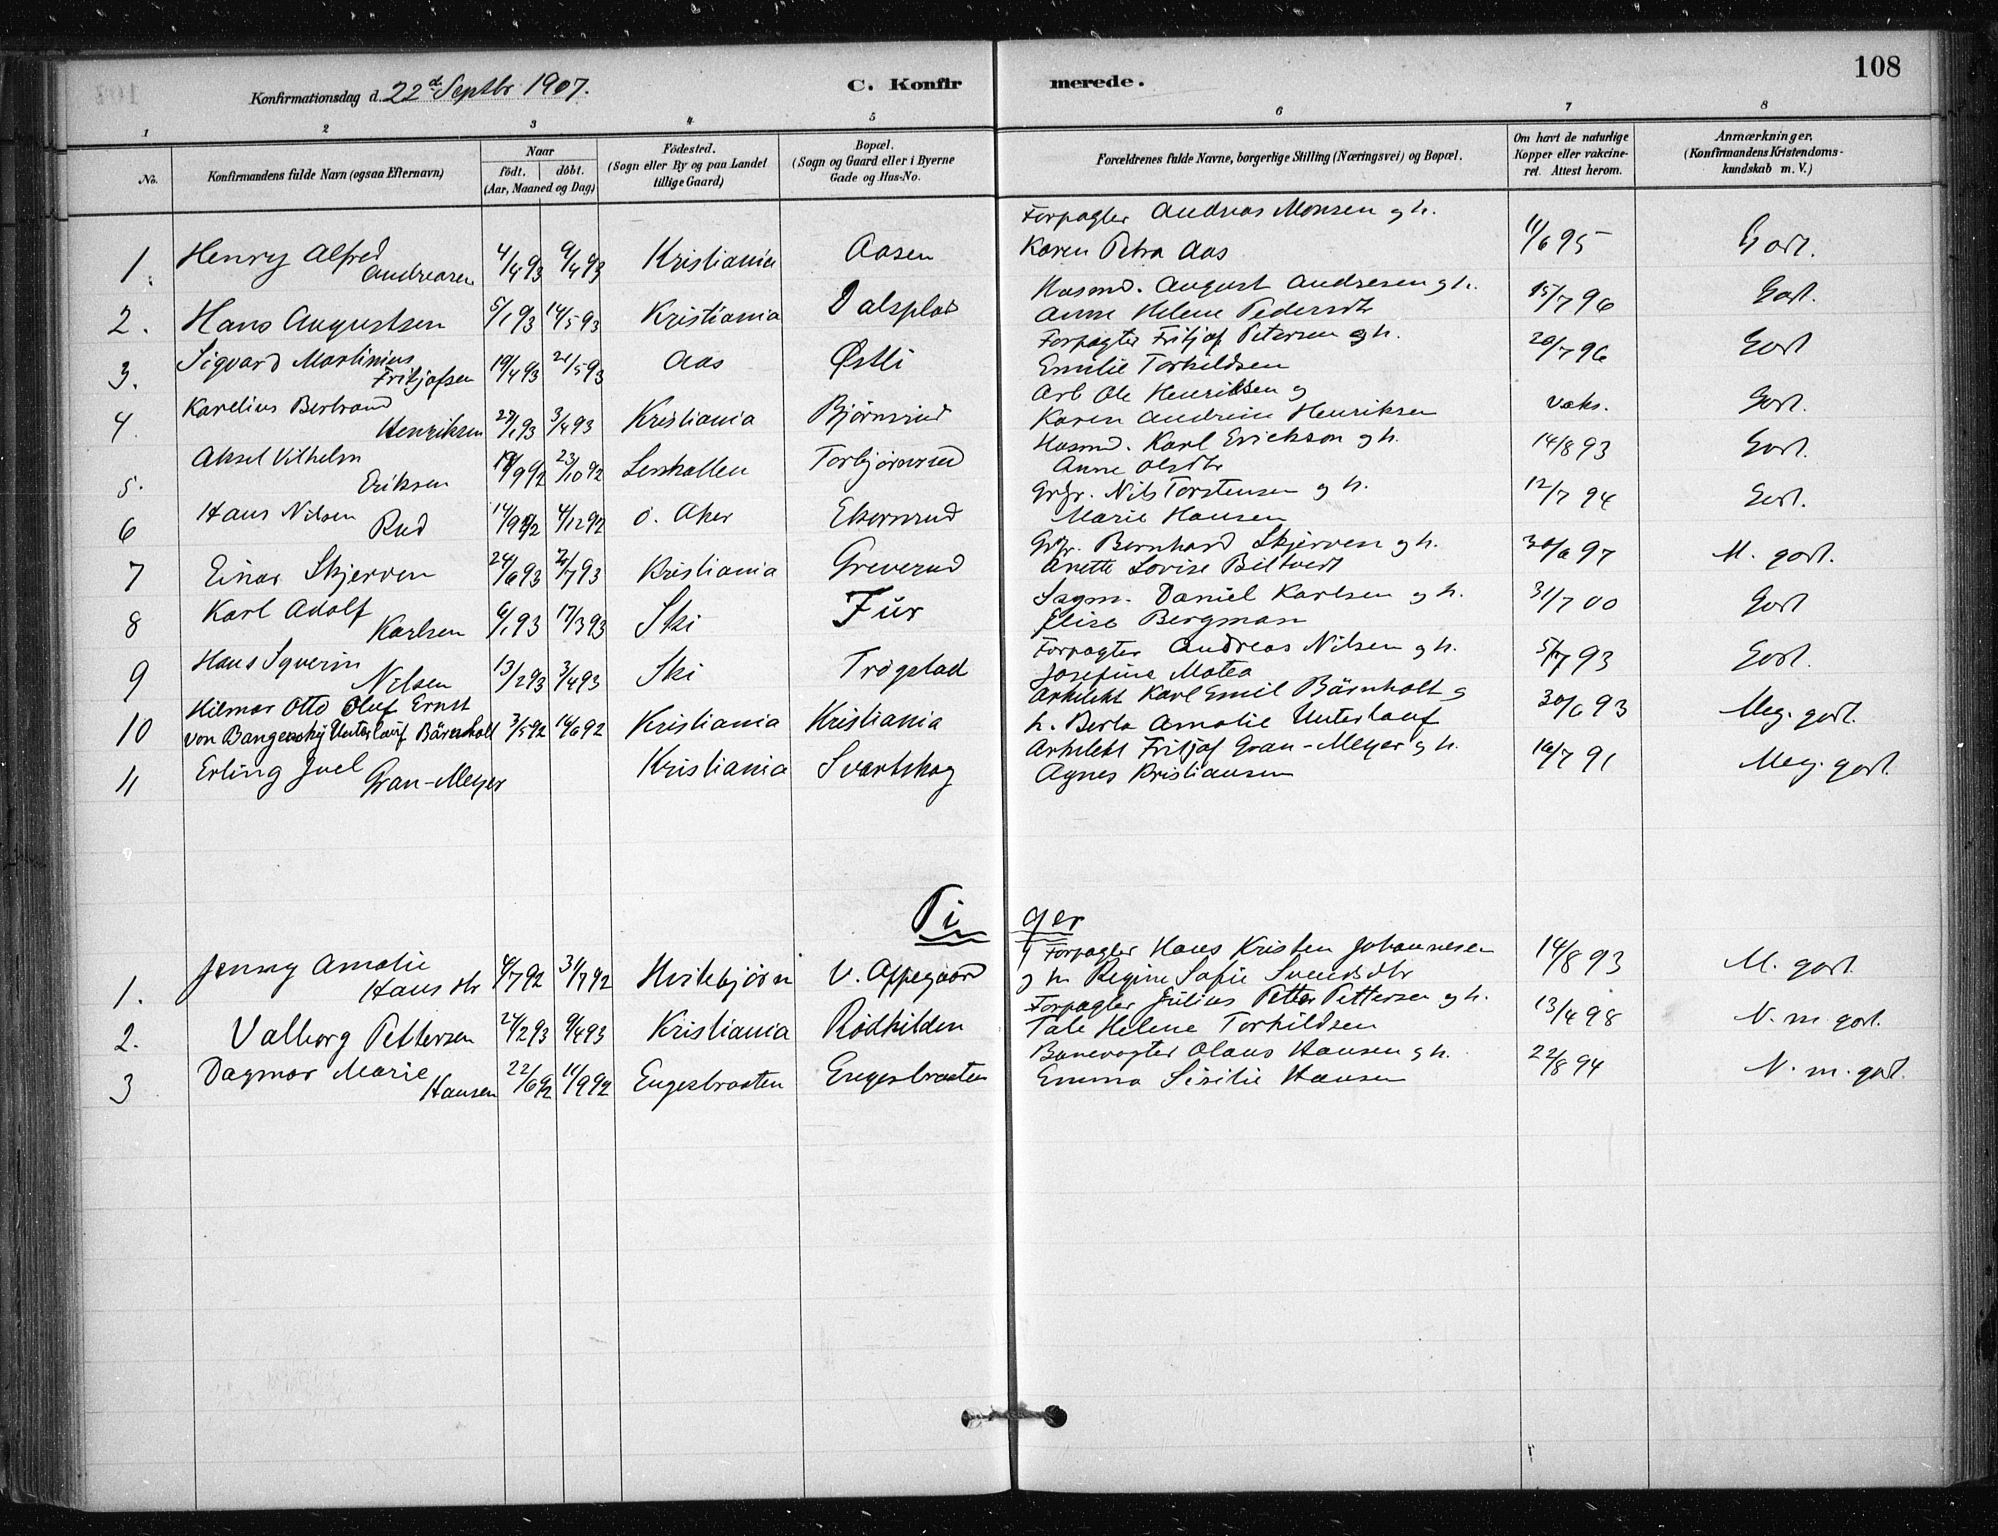 108
Konfirmationsdag d. 22d Septbr 1907.
C. Konfirmerede.
1 2 3 4 5 6 7 8
No.
Konfirmandens fulde Navn (ogsaa Efternavn)
Naar
født. døbt.
(Aar, Maaned og Dag)
Fødested.
(Sogn eller By og paa Landet
tillige Gaard)
Bopæl.
(Sogn og Gaard eller i Byerne
Gade og Hus-No.
Forældrenes fulde Navne, borgerlige Stilling (Næringsvei) og Bopæl.
Om havt de naturlige
Kopper eller vakcine-
ret. Attest herom.
Anmærkninger.
(Konfirmandens Kristendoms-
kundskab m. V.)
Forpagter Andreas Monsen og h.
1. Henry Alfred Andreasen 4/4 93 9/4 93 Kristiania Aasen Karen Petra Aas 11/6 95 Godt.
Husmd. August Andresen og h.
2. Hans Augustsen 5/1 93 14/5 93 Kristiania Dalsplads Anne Helene Pedersdtr 15/7 96 Godt.
Sigvard Martinius Forpagter Fritjof Petersen og h.
3. Fritjofsen 19/4 93 21/5 93 Aas Østli Emilie Torkildsen 20/7 96 Godt
Karelius Bertrand Arb Ole Henriksen og
4. Henriksen 27/1 93 3/4 93 Kristiania Bjørnsrud Karen Andrine Henriksen Vaks. Godt.
Aksel Vilhelm Husmd. Karl Erickson og h.
5. Eriksen 19/9 92 23/10 92 Torbjørnsrud Anne Olsdtr 14/8 93 Godt.
Hans Nilsen Grbr. Nils Torstensen og h.
6 Rud 14/9 92 4/12 92 Ø. Aker Ekornrud Marie Hansen 12/7 94 Godt.
Grbr. Bernhard Skjerven og h.
7 Einar Skjerven 24/6 93 2/7 93 Kristiania Greverud Anette Lovise Biltvedt 30/6 97 M. godt.
Karl Adolf Sagm. Daniel Karlsen og h.
8 Karlsen 6/1 93 17/3 93 Ski Fur Elise Bergman 31/7 00 Godt
Hans Syverin Forpagter Andreas Nilsen og h.
9 Nilsen 13/2 93 3/4 93 Ski Trøgstad Josefine Matea 5/7 93 Godt.
Hilmar Otto Oluf Ernst Arkitekt Karl Emil Bärnholt og
10 von Unterlauf Bärnholt 3/5 92 16/6 92 Kristiania Kristiania h. Berta Amalie Unterlauf 30/6 93 Meg. godt.
Erling Juel Arkitekt Fritjof Gran-Meyer og h.
11 Gran-Meyer Kristiania Svartskog Agnes Kristiansen 16/7 91 Meg. godt.
Piger
Jenny Amalie Forpagter Hans Kristen Johannesen
1. Hansdtr 4/7 92 31/7 92 Hvitebjørn V. Oppegaard og h. Regine Sofie Svendsdtr 14/8 93 M. godt.
Forpagter Julius Petter Pettersen og h.
2. Valborg Pettersen 24/2 93 9/4 93 Kristiania Rødkilden Tale Helene Torkildsen 13/4 98 N. m godt.
Dagmar Marie Banevogter Olaus Hansen og h.
3 Hansen 22/6 92 11/9 92 Engesbraaten Engesbraaten Emma Sisilie Hansen 22/8 94 N. m. godt.